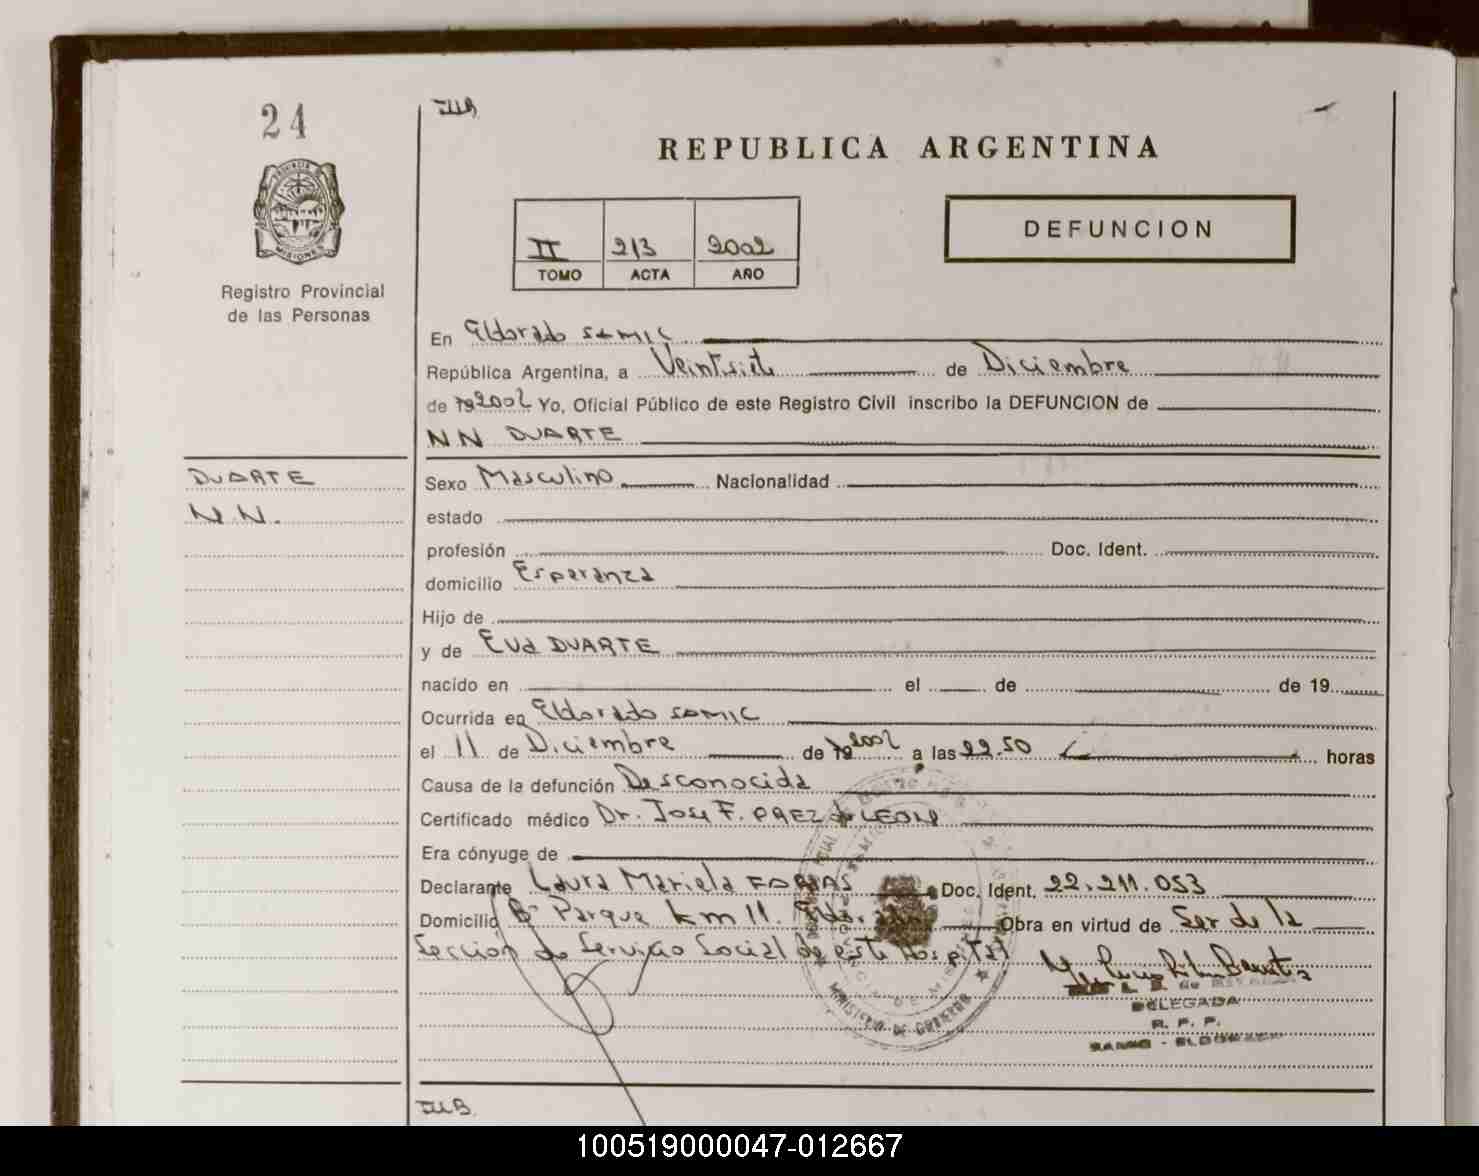 24
REPUBLICA ARGENTINA
PROVINCIA DE
MISIONES
Registro Provincial
de las Personas
II 213 2002
TOMO ACTA AÑO
DEFUNCION
En Eldorado SAMIC
República Argentina, a Veintisiete de Diciembre
de 19 2002 Yo, Oficial Público de este Registro Civil inscribo la DEFUNCION de
NN DUARTE
DUARTE
N.N.
Sexo Masculino Nacionalidad
estado
profesión Doc. Ident.
domicilio Esperanza
Hijo de
y de Eva DUARTE
nacido en el de de 19
Ocurrida en Eldorado SAMIC
el 11 de Diciembre de 19 2002 a las 22.50 horas
Causa de la defunción Desconocida
Certificado médico Dr. José F. PAEZ de LEON
Era cónyuge de
Declarante Laura Mariela FARIAS Doc. Ident. 22.211.053
Domicilio B° Parque km 11. Eldorado Obra en virtud de Ser de la
Sección de Servicio Social de este Hospital
MINISTERIO DE GOBIERNO
PROVINCIA DE MISIONES
DELEGADA
R. P. P.
SAMIC - ELDORADO
100519000047-012667